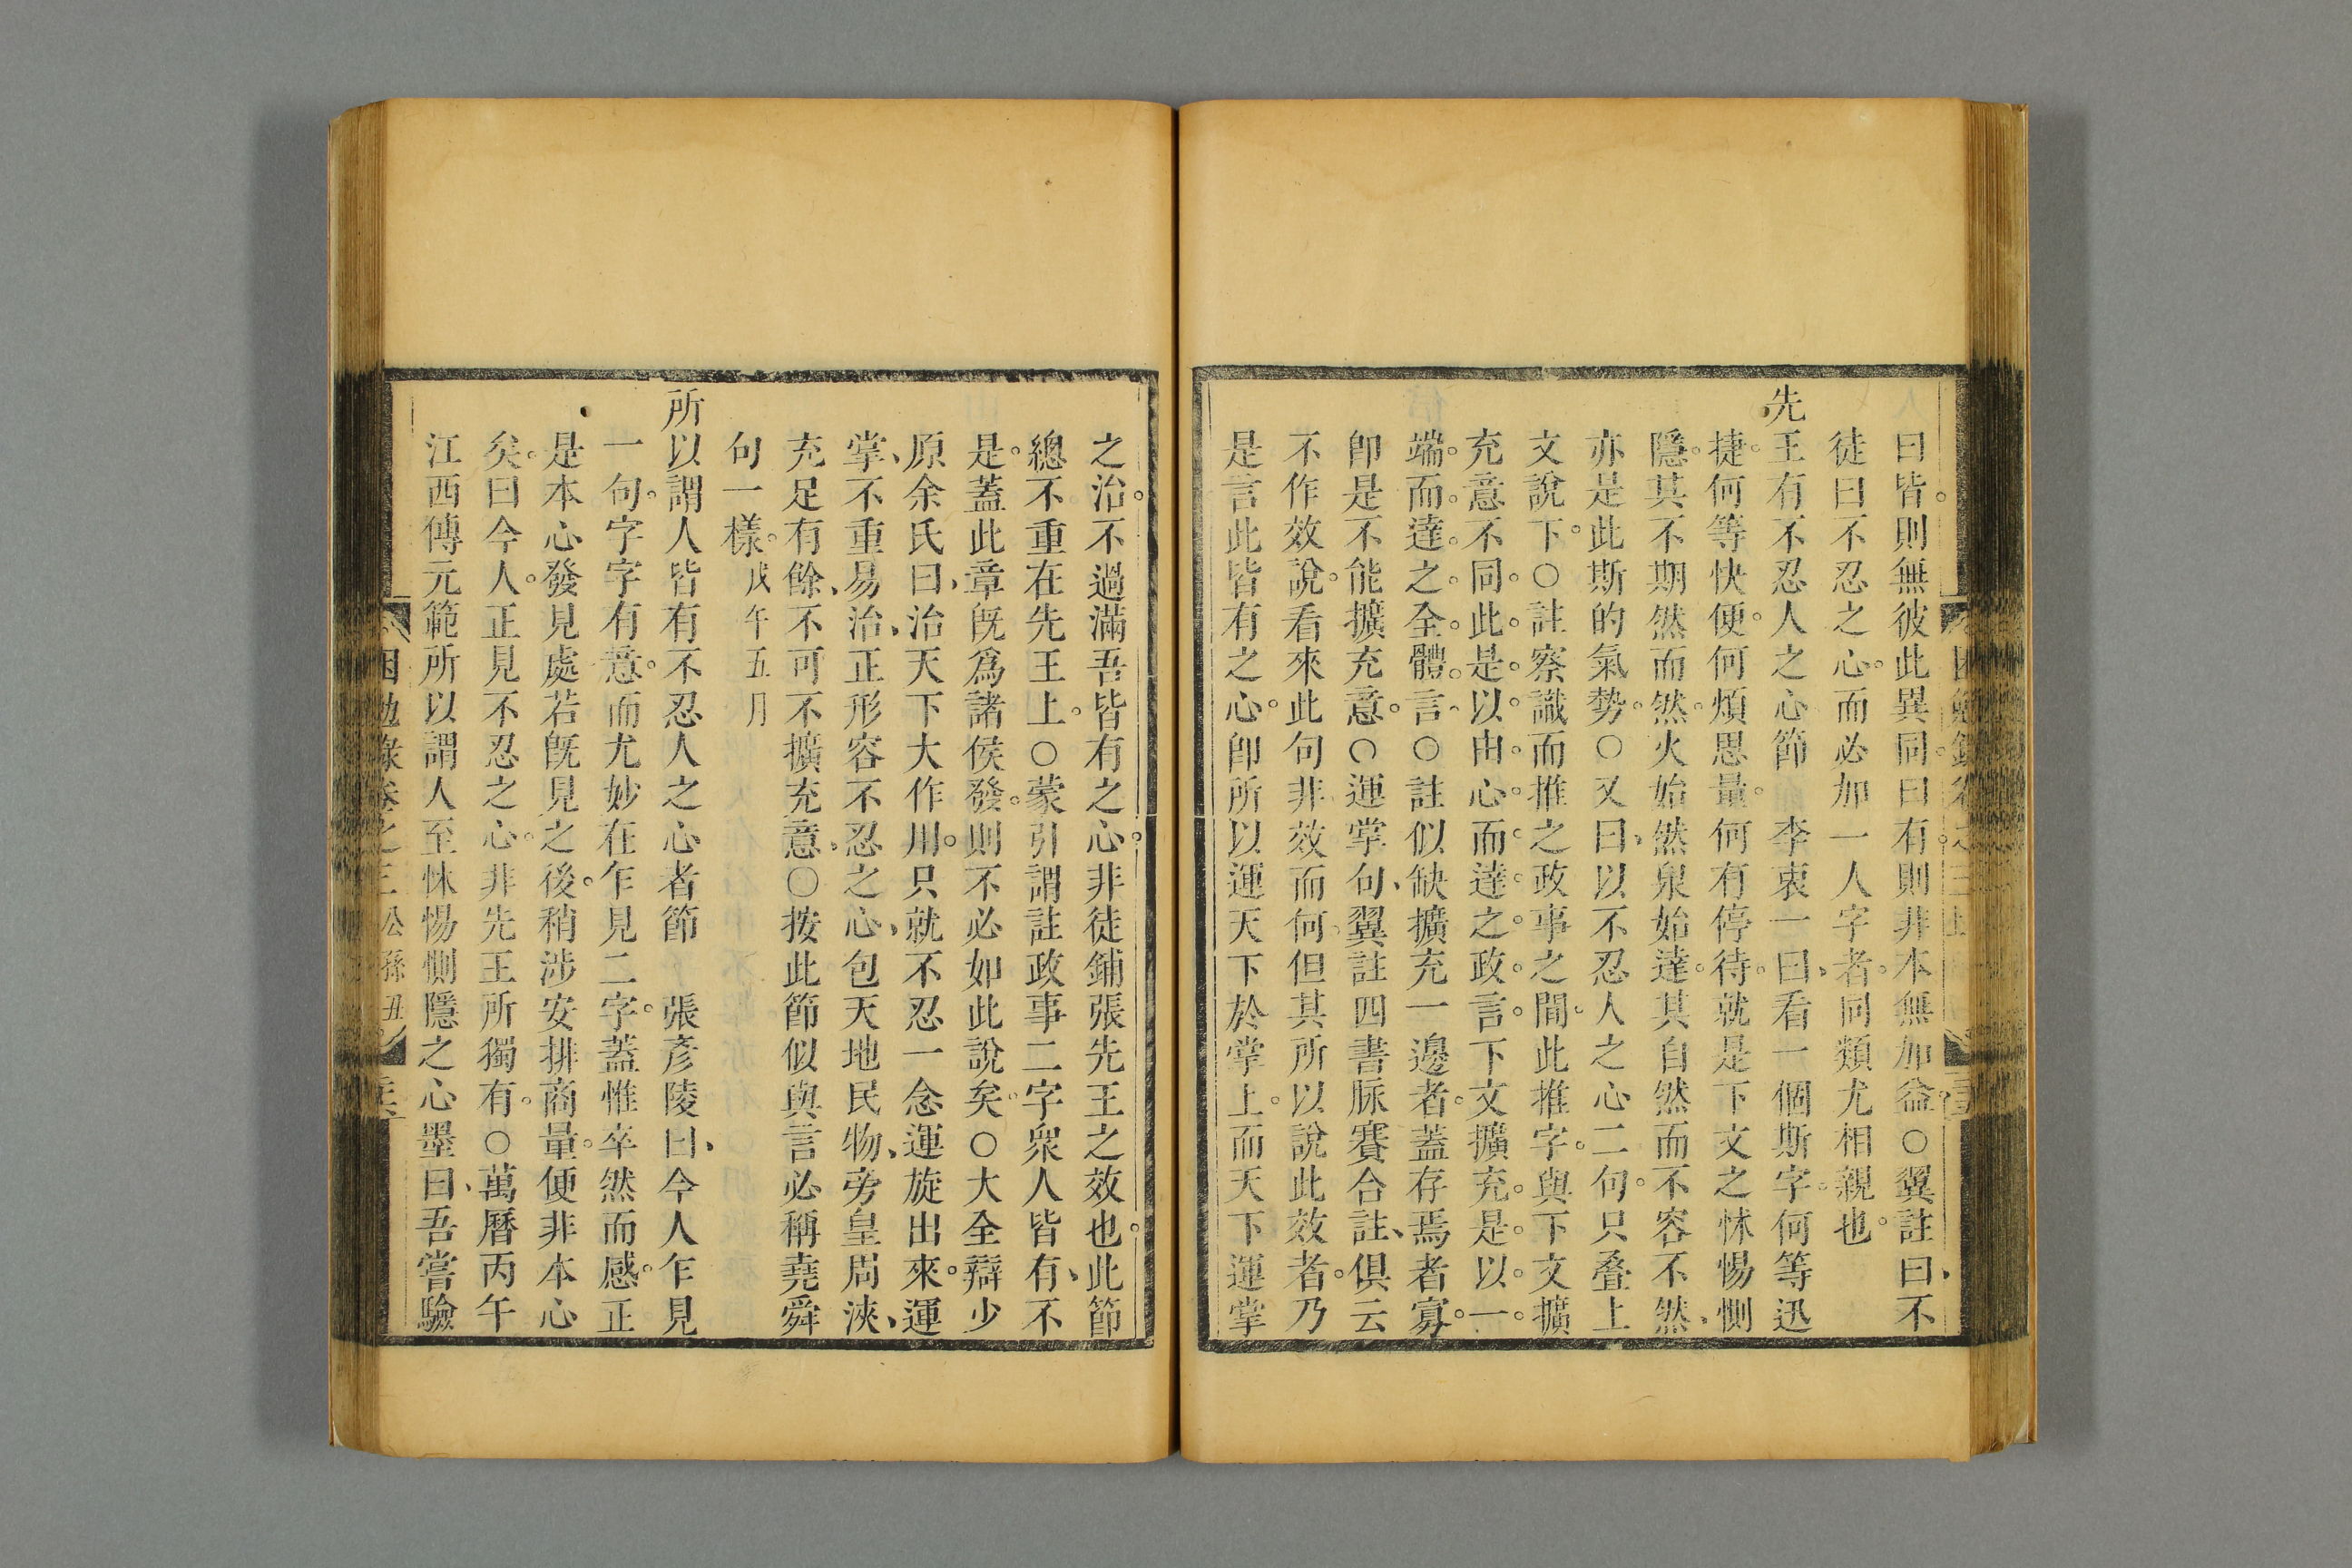 曰皆。則無彼此異同。曰有。則非本無加益。○翼註曰、不
徒曰不忍之心。而必加一人字者。同類尤相親也。
先王有不忍人之心節　李衷一曰、看一個斯字。何等迅
捷。何等快便。何煩思量。何有停待。就是下文之怵惕惻
隱。其不期然而然。火始然泉始達。其自然而不容不然、
亦是此斯的氣勢。○又曰、以不忍人之心二句。只叠上
文說下。○註察識而推之政事之間。此推字。與下文擴
充意不同。此是以由心而達之政言。下文擴充。是以一
端。而達之全體言。○註似缺擴充一邊者。蓋存焉者寡。
卽是不能擴充意。○運掌句、翼註四書脉賽合註、俱云
不作效說。看來此句非效而何。但其所以說此效者。乃
是言此皆有之心。卽所以運天下於掌上。而天下運掌
之治。不過滿吾皆有之心。非徒鋪張先王之效也。此節
總不重在先王上。○蒙引謂註政事二字衆人皆有、不
是。蓋此章旣爲諸侯發。則不必如此說矣。○大全辯少
原余氏曰、治天下大作用。只就不忍一念運旋出來。運
掌、不重易治、正形容不忍之心、包天地民物、旁皇周浹、
充足有餘、不可不擴充意。○按此節似與言必稱堯舜
句一樣。戊午五月
所以謂人皆有不忍人之心者節　張彥陵曰、今人乍見
一句。字字有意。而尤妙在乍見二字。蓋惟卒然而感。正
是本心發見處若旣見之後。稍涉安排商量。便非本心
矣。曰今人。正見不忍之心。非先王所獨有。○萬曆丙午
江西傳元範所以謂人至怵惕惻隱之心墨曰、吾嘗驗
困勉錄卷之三 公孫丑